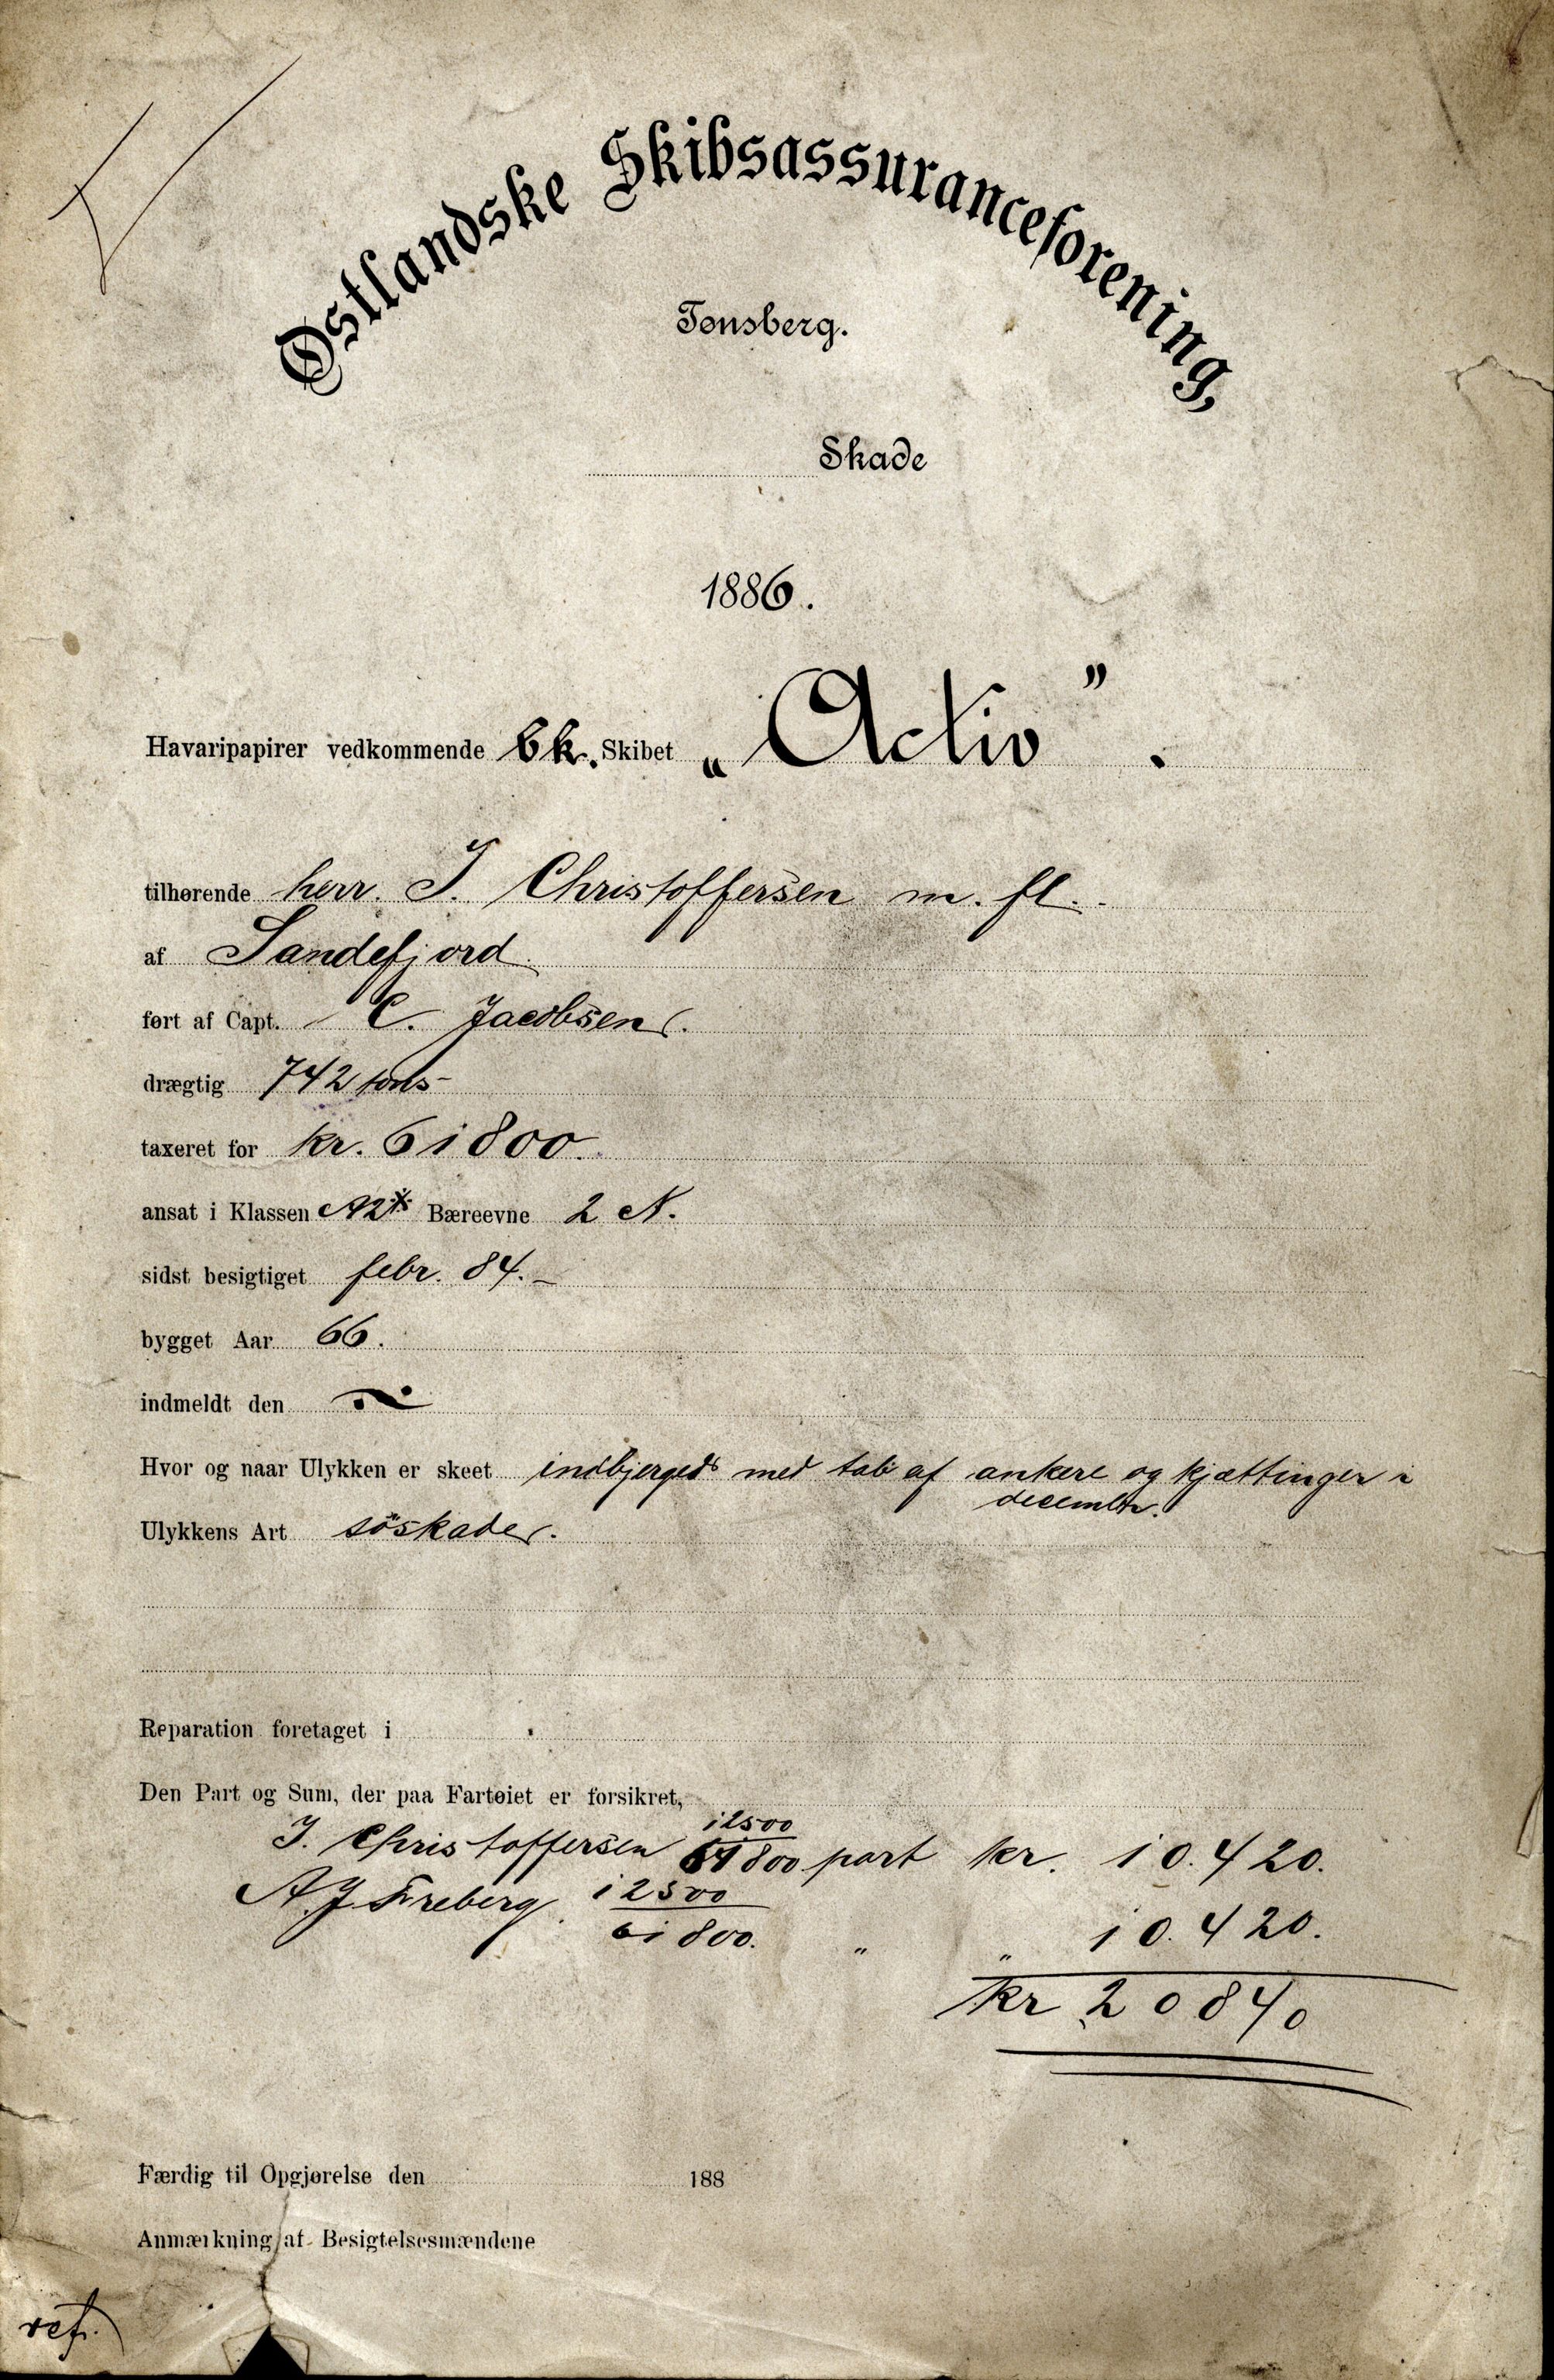 Østlandske Skibsassuranceforening,
Tønsberg.
Skade
1886.
Havaripapirer vedkommende bk. Skibet „Activ”.
tilhørende herr. J. Christoffersen m. fl.
af Sandefjord
ført af Capt. C. Jacobsen.
drægtig 742 tons
taxeret for kr. 61800.
ansat i Klassen A2* Bæreevne 2 N.
sidst besigtiget febr. 84.
bygget Aar 66.
indmeldt den
Hvor og naar Ulykken er skeet indbjerged med tab af ankere og kjættinger i
december.
Ulykkens Art söskade.
Reparation foretaget i
Den Part og Sum, der paa Fartøiet er forsikret,
J. Christoffersen 12500/61800 part kr. 10.420.
A J Freberg. 12500/61800. " " 10.420.
kr 20840
Færdig til Opgjørelse den 188
Anmærkning af Besigtelsesmændene
ref.